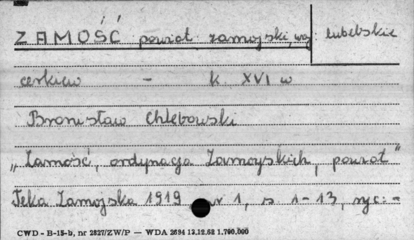 ZAMOŚĆ powiat zamojski, woj. lubelskie
cerkiew - k. XVI w
Bronisław Chlebowski
„Zamość, ordynacja Zamoyskich, powiat"
Teka Zamojska 1919 nr 1, s. 1-13, ryc: -
CWD - B-15-b, nr 2827/ZW/P — WDA 2694 12.12.52 1.700.000